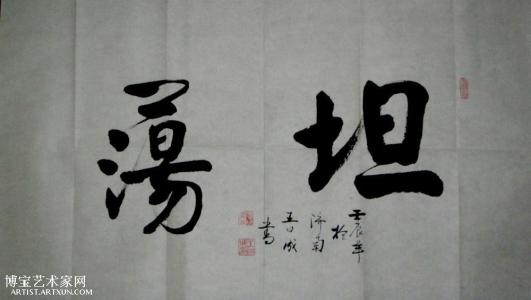 坦蕩
壬辰年
於
濟南
書
博宝艺术家网
ARTIST.ARTXUN.COM